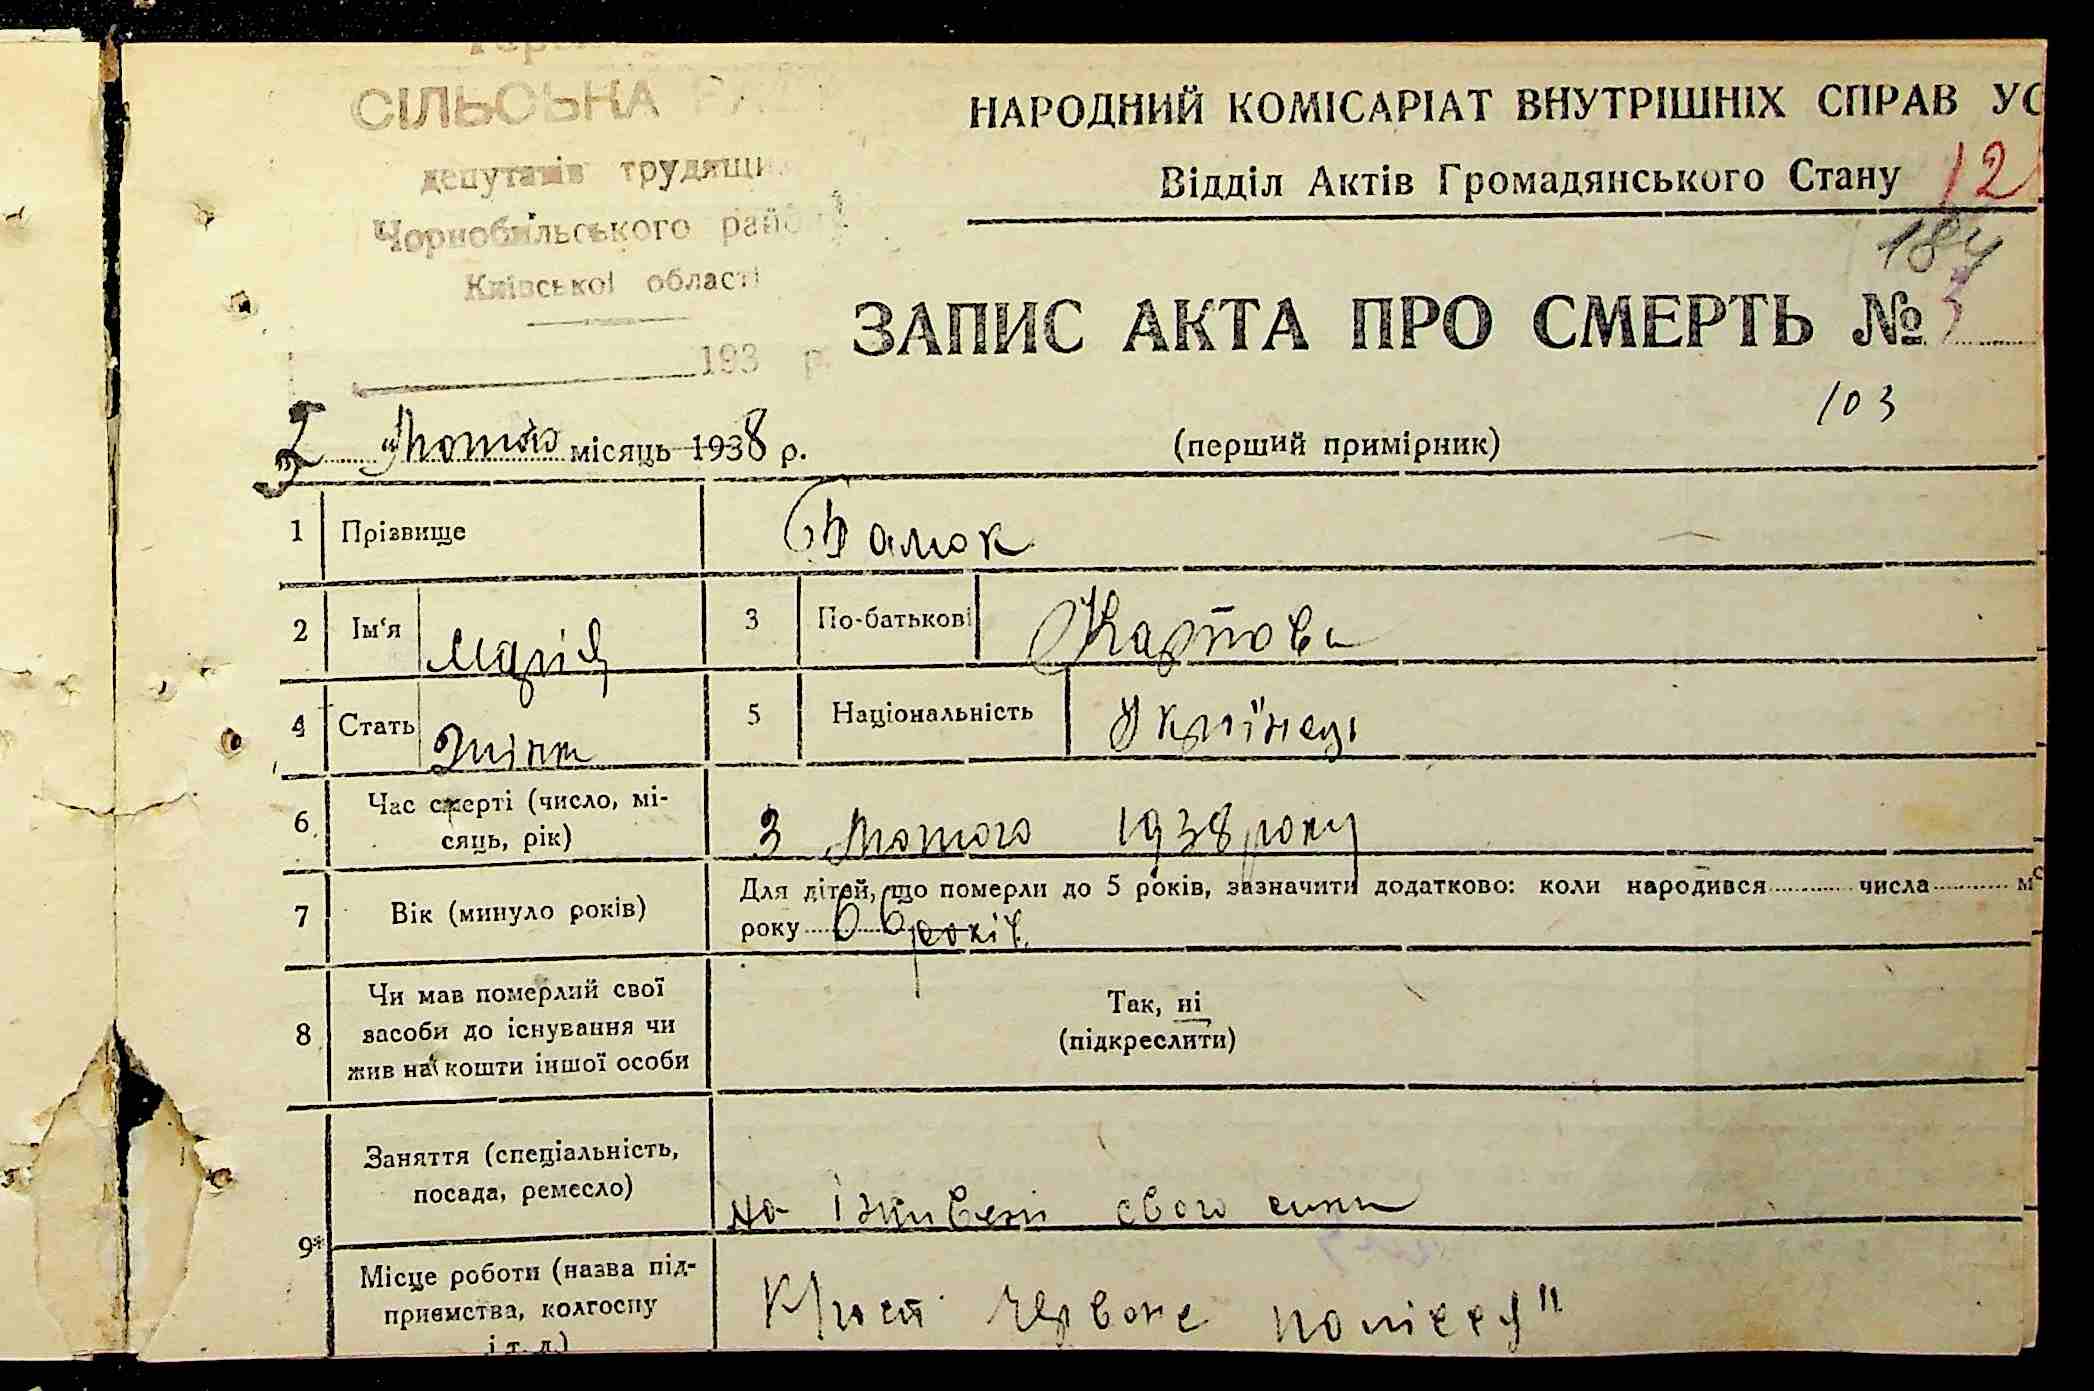 СІЛЬСЬКА РА
депутатів трудящи
Чорнобильського райо
Київської області
193 р.
НАРОДНИЙ КОМІСАРІАТ ВНУТРІШНІХ СПРАВ УС
Відділ Актів Громадянського Стану 12
184
ЗАПИС АКТА ПРО СМЕРТЬ № 3
103
лютого місяць 1938 р.
(перший примірник)
1 Прізвище
2 Ім'я Марія 3 По-батькові Карпова
4 Стать Жінка 5 Національність Українец
6 Час смерті (число, мі-
сяць, рік) 3 лютого 1938 року
7 Вік (минуло років) Для дітей, що померли до 5 років, зазначити додатково: коли народився числа м
року 66 років
8 Чи мав померлий свої
засоби до існування чи
жив на кошти іншої особи
Так, ні
(підкреслити)
9* Заняття (спеціальність,
посада, ремесло) на свого сина
Місце роботи (назва під-
приємства, колгоспу
і т. д.) К/госп Червоне полісся"